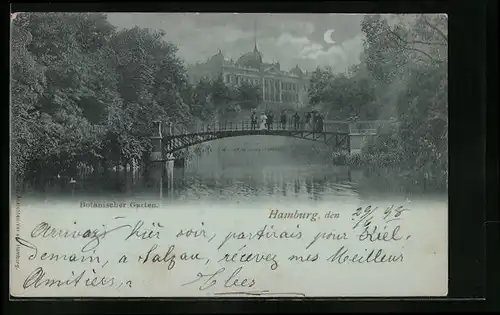 Botanischer Garten.
Hamburg, den 29/6 98
Arrivé hier soir, partirais pour Kiel.
demain, a Salzau, recevez mes Meilleur
Amitiées,